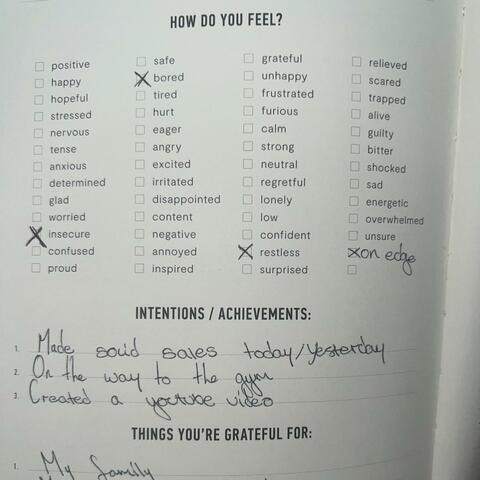 HOW DO YOU FEEL?
positive safe grateful relieved
happy bored unhappy scared
hopeful tired frustrated trapped
stressed hurt furious alive
nervous eager calm guilty
tense angry strong bitter
anxious excited neutral shocked
determined irritated regretful sad
glad disappointed lonely energetic
worried content low overwhelmed
insecure negative confident unsure
confused annoyed restless on edge
proud inspired surprised
INTENTIONS / ACHIEVEMENTS:
1. Made said sales today/yesterday
2. On the way to the gym
3. Created a youtube video
THINGS YOU'RE GRATEFUL FOR:
1. My family